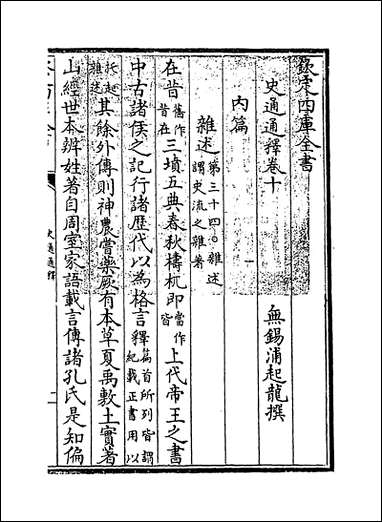 欽定四庫全書
史通通釋卷十
無錫浦起龍撰
內篇
雜述第三十四。雜述謂史流之雜著
在昔舊作昔在三墳五典春秋檮杌即當作皆上代帝王之書
中古諸侯之記行諸歷代以為格言釋篇首所列皆謂紀載正書用以
挑起雜述其餘外傳則神農嘗藥厥有本草夏禹敷土實著
山經世本辨姓著自周室家語載言傳諸孔氏是知偏
史通通釋